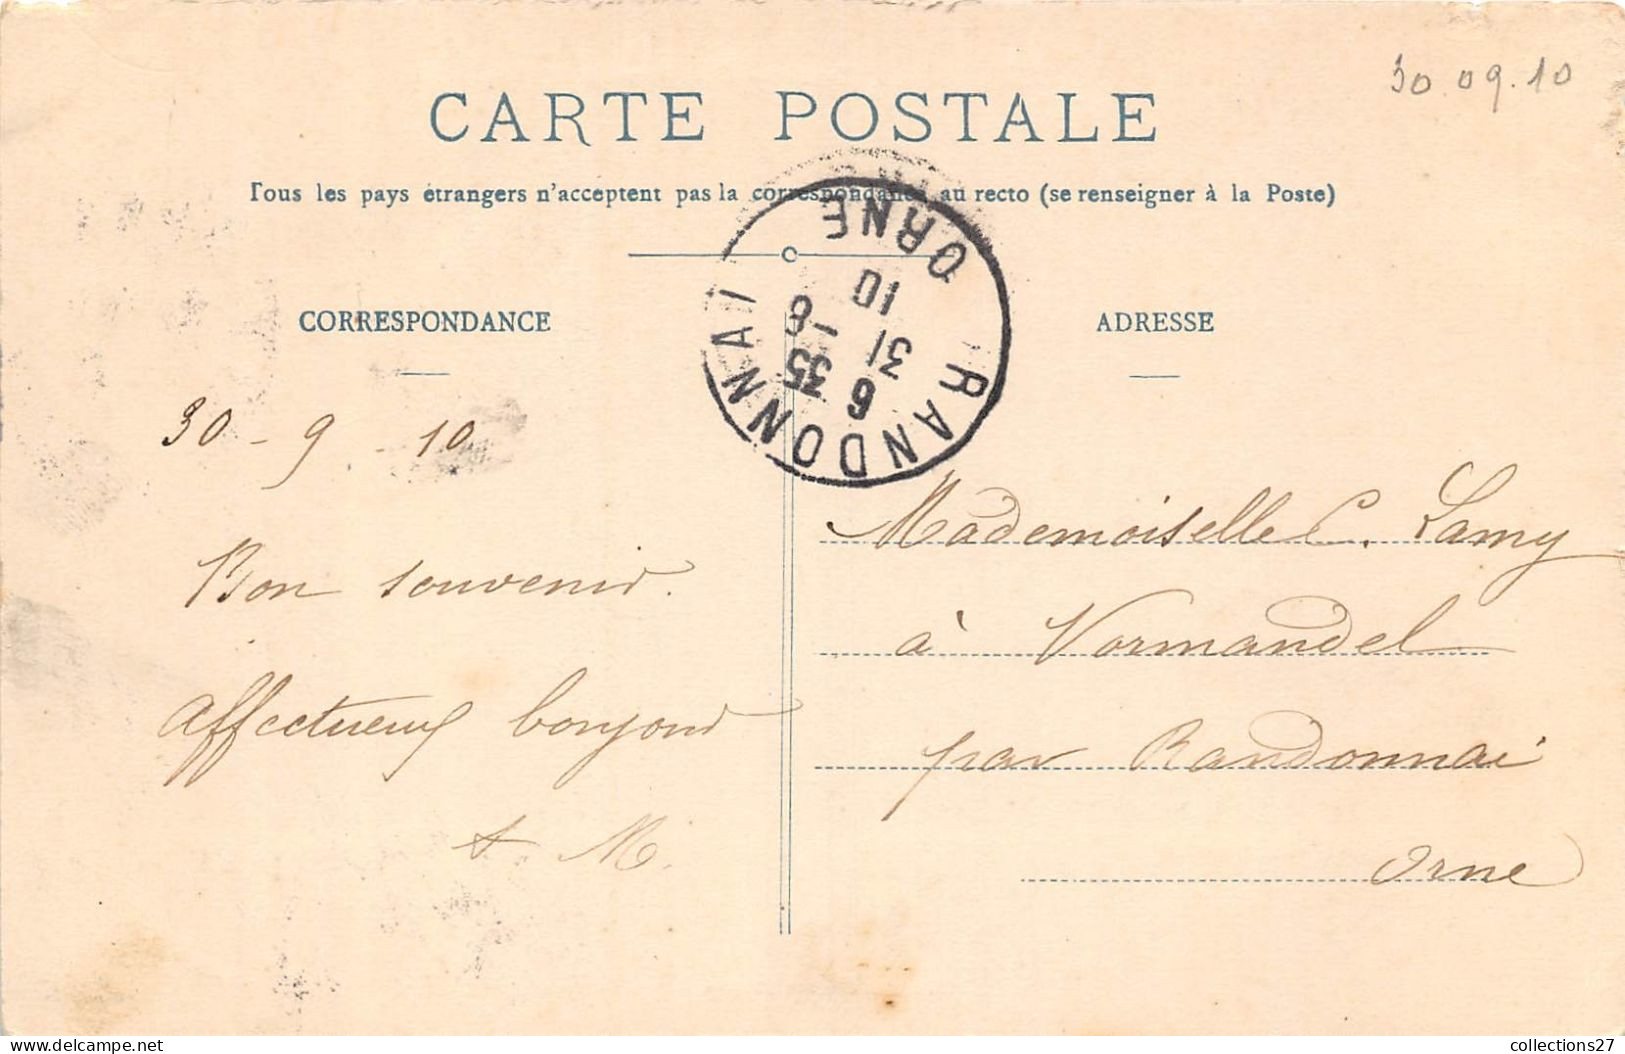 30.09.10
CARTE POSTALE
Tous les pays étrangers n'acceptent pas la correspondance au recto (se renseigner à la Poste)
CORRESPONDANCE
ADRESSE
RANDONNAI
ORNE
6 35
31 - 6
10
30 - 9 - 10
Bon souvenir.
Affectueux bonjour
M.
Mademoiselle C. Lamy
à Normandel
par Randonnai
Orne
collections27